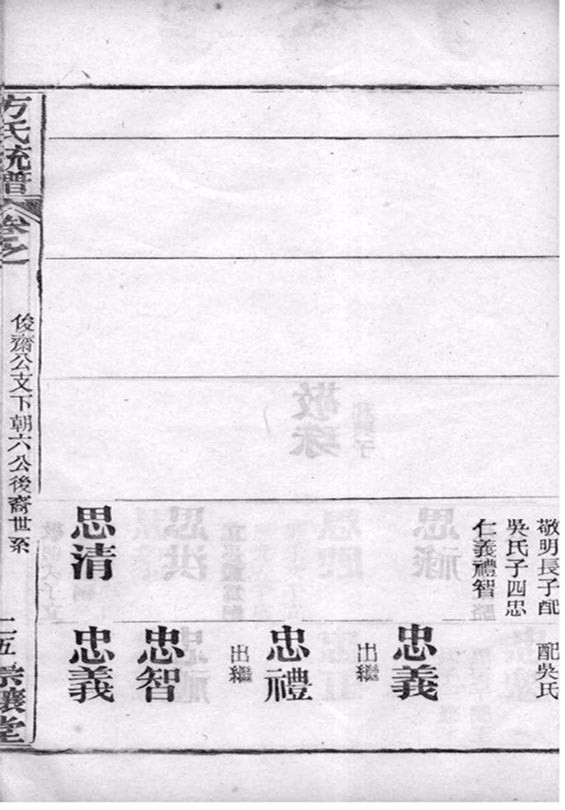 敬明長子配
吳氏子四忠
仁義禮智
思清
配吳氏
忠義
出繼
忠禮
出繼
忠智
忠義
方氏統譜
卷之
俊齋公支下朝六公後裔世系
二五
崇讓堂